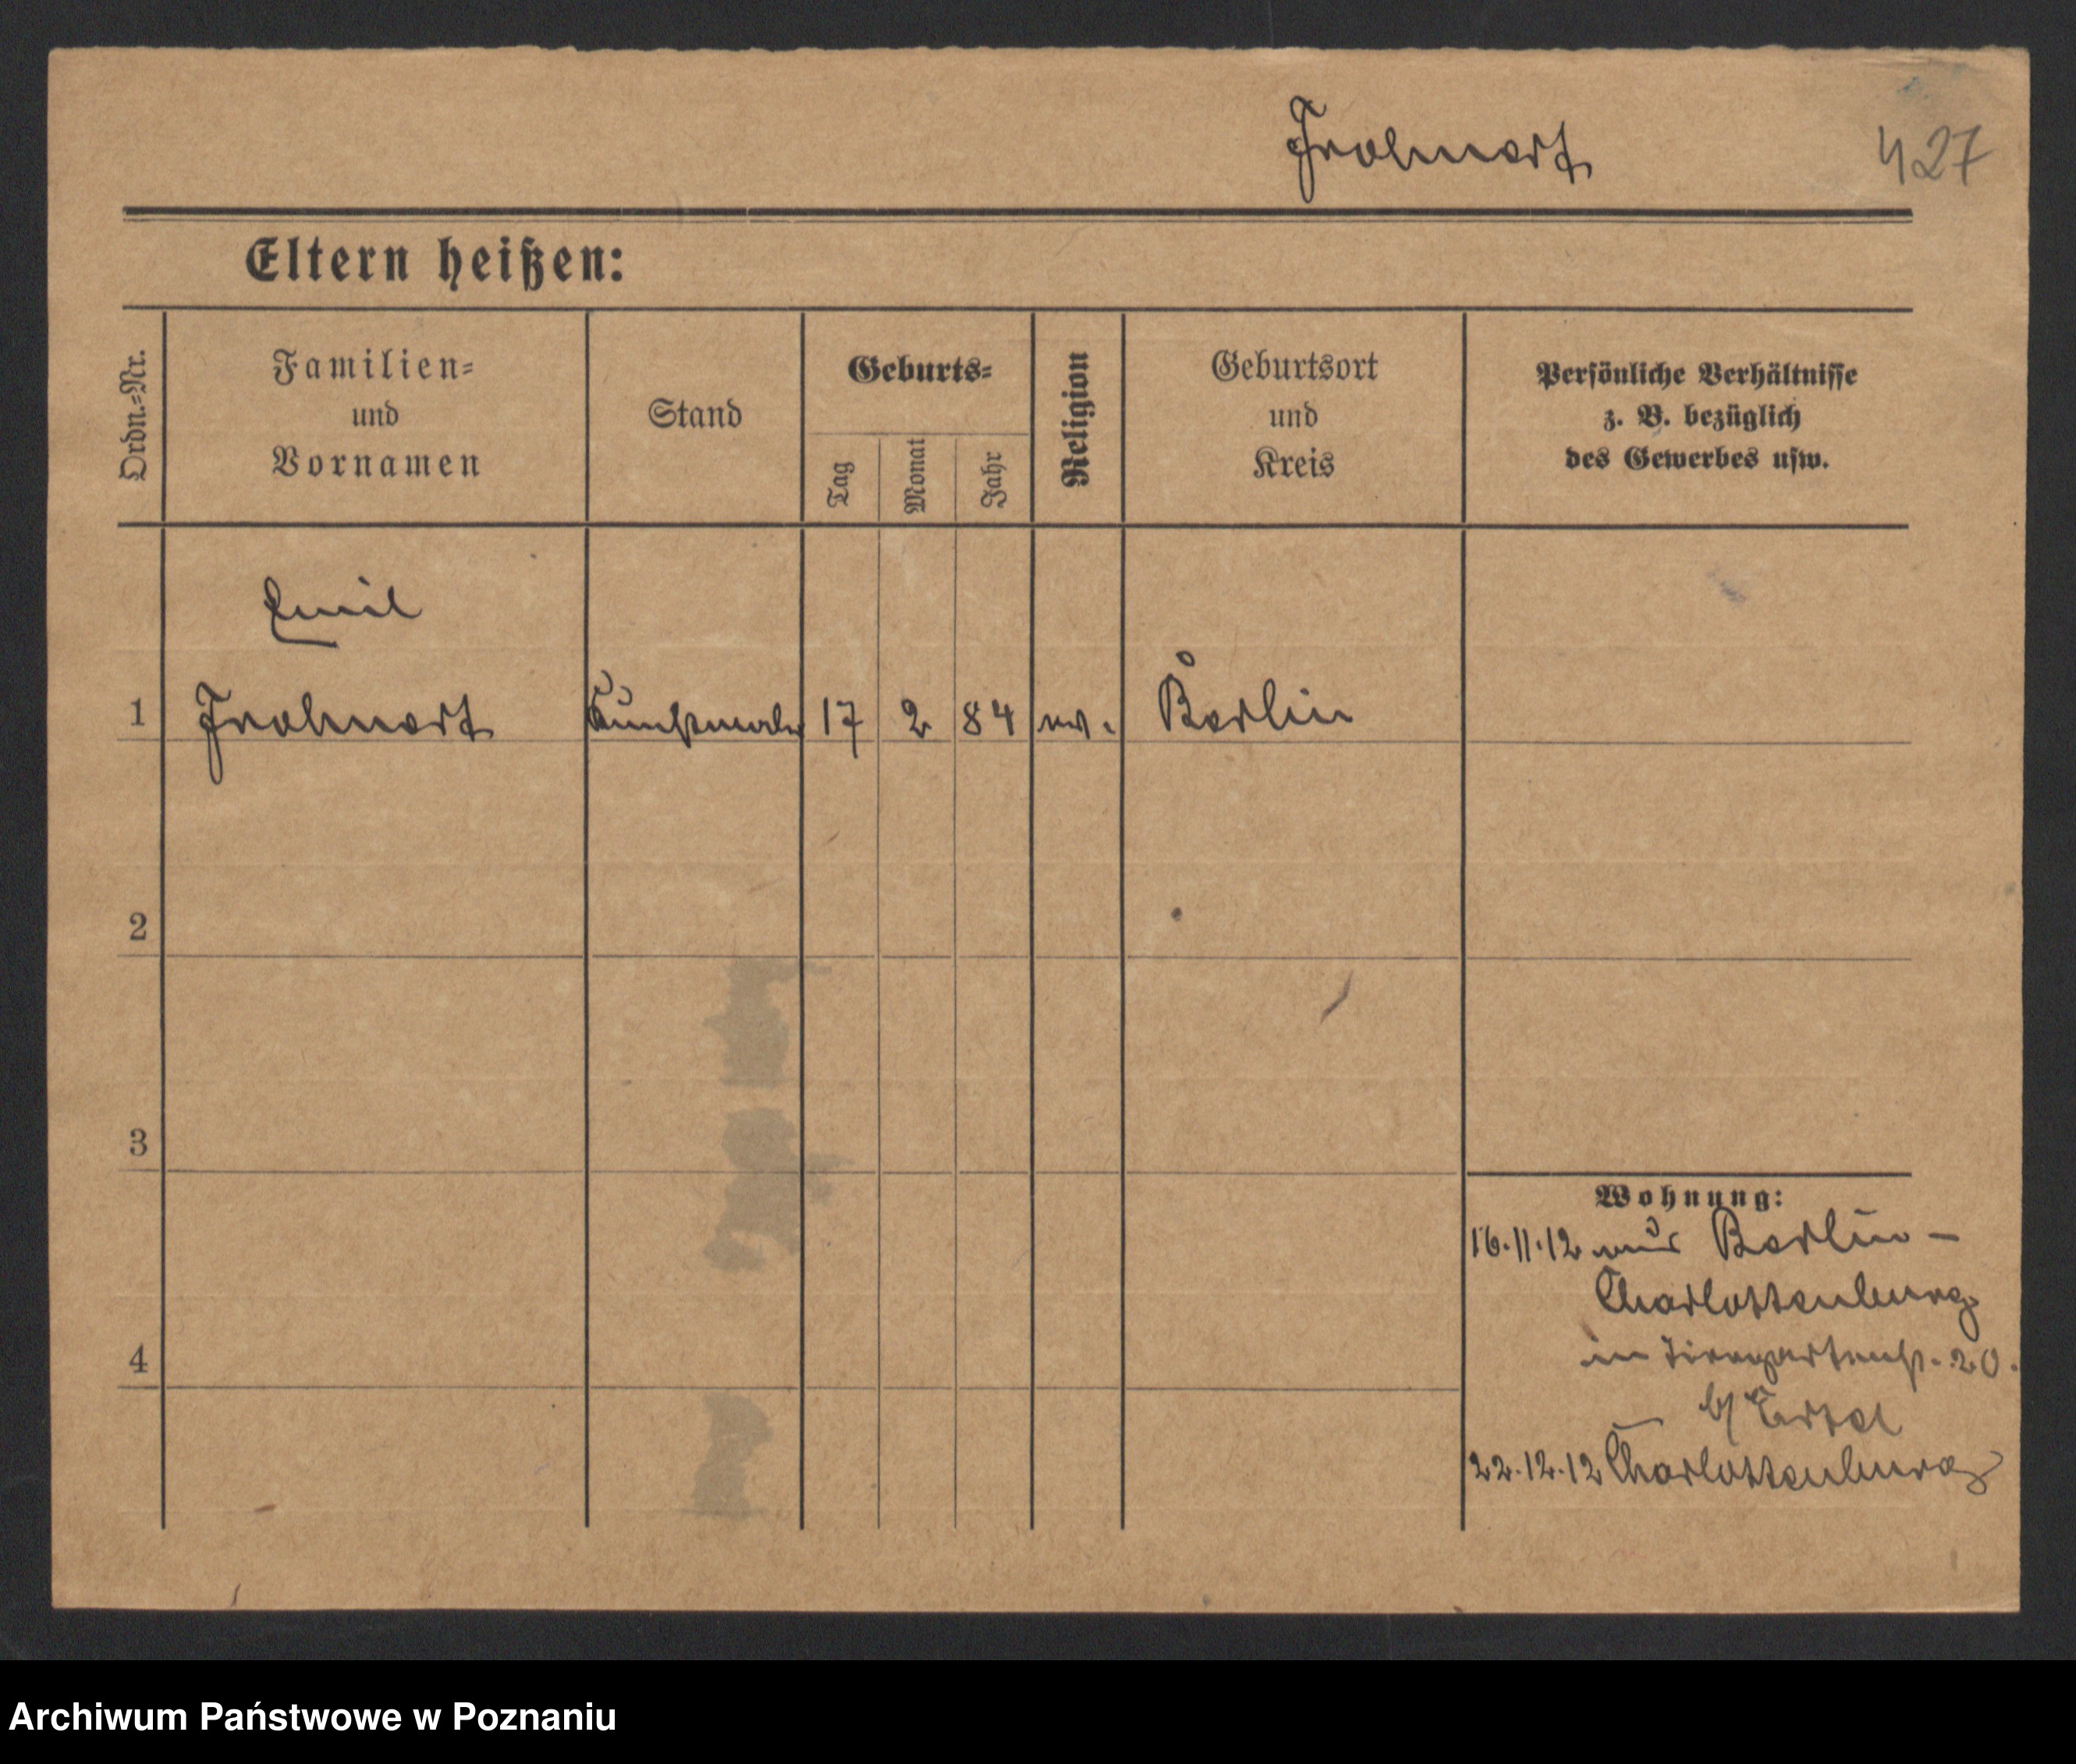 Frohnert
427
Eltern heißen:
Ordn.-Nr.
Familien-
und
Vornamen
Stand
Geburts-
Tag
Monat
Jahr
Religion
Geburtsort
und
Kreis
Persönliche Verhältnisse
z. B. bezüglich
des Gewerbes usw.
Emil
1 Frohnert Kunstmaler 17 2 84 ev. Berlin
2
3
4
Wohnung:
16.11.12 aus Berlin-
Charlottenburg
in Tiergartenstr. 20.
b/
22.12.12 Charlottenburg
Archiwum Państwowe w Poznaniu